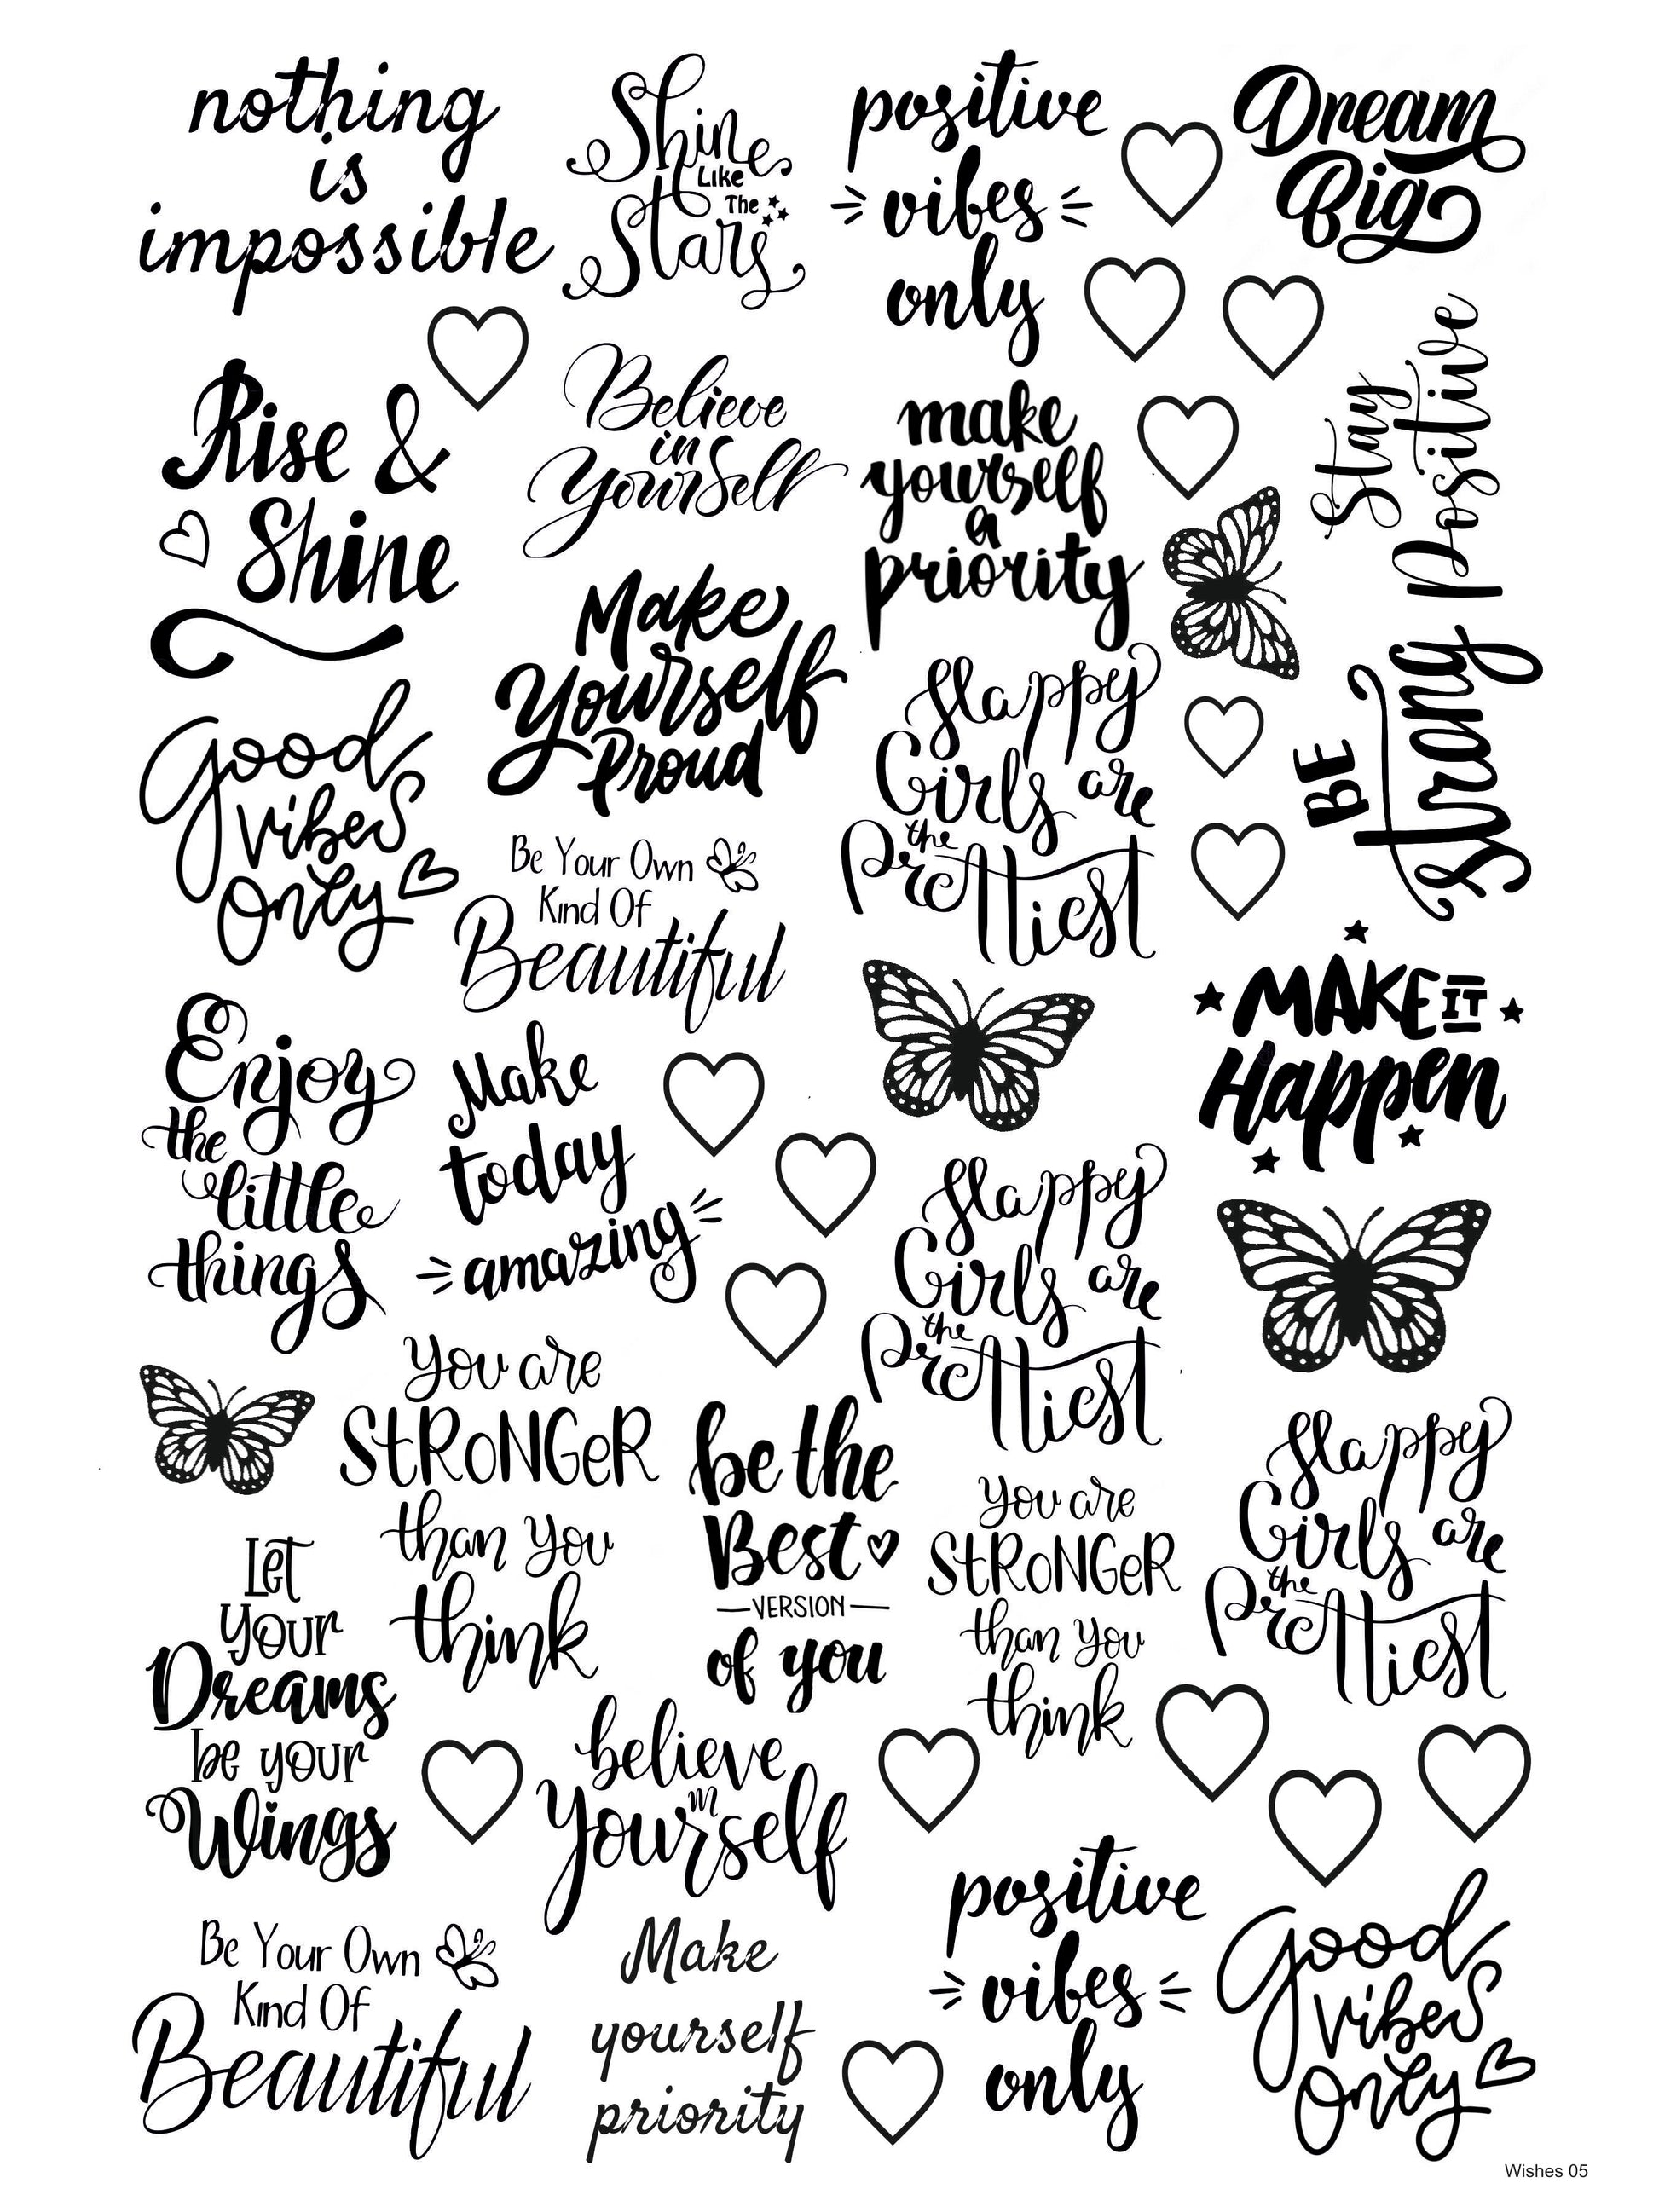 nothing
is
impossible
Shine
Like
The
Stars
positive
vibes
only
Dream
Big
Rise &
Shine
Believe
in
Yourself
make
yourself
a
priority
Stay
positive
Make
Yourself
Proud
Good
vibes
Only
Happy
Girls are
the
Prettiest
BE
strong
Be Your Own
Kind Of
Beautiful
MAKE IT
Happen
Enjoy
the
little
things
Make
today
amazing
Happy
Girls are
the
Prettiest
You are
STRONGER
than you
think
be the
Best
VERSION
of you
You are
STRONGER
than you
think
Happy
Girls are
the
Prettiest
Let
your
Dreams
be your
Wings
believe
in
Yourself
Be Your Own
Kind Of
Beautiful
Make
yourself
priority
positive
vibes
only
Good
vibes
Only
Wishes 05